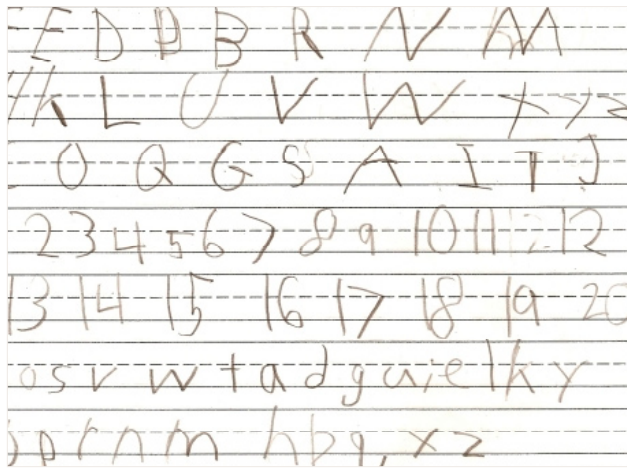 F D P B R N M
K L U V W X Y Z
O Q G S A I T J
2 3 4 5 6 7 8 9 10 11 12
13 14 15 16 17 18 19 20
o s v w t a d g u i e l k y
j p r n m h b q, x z